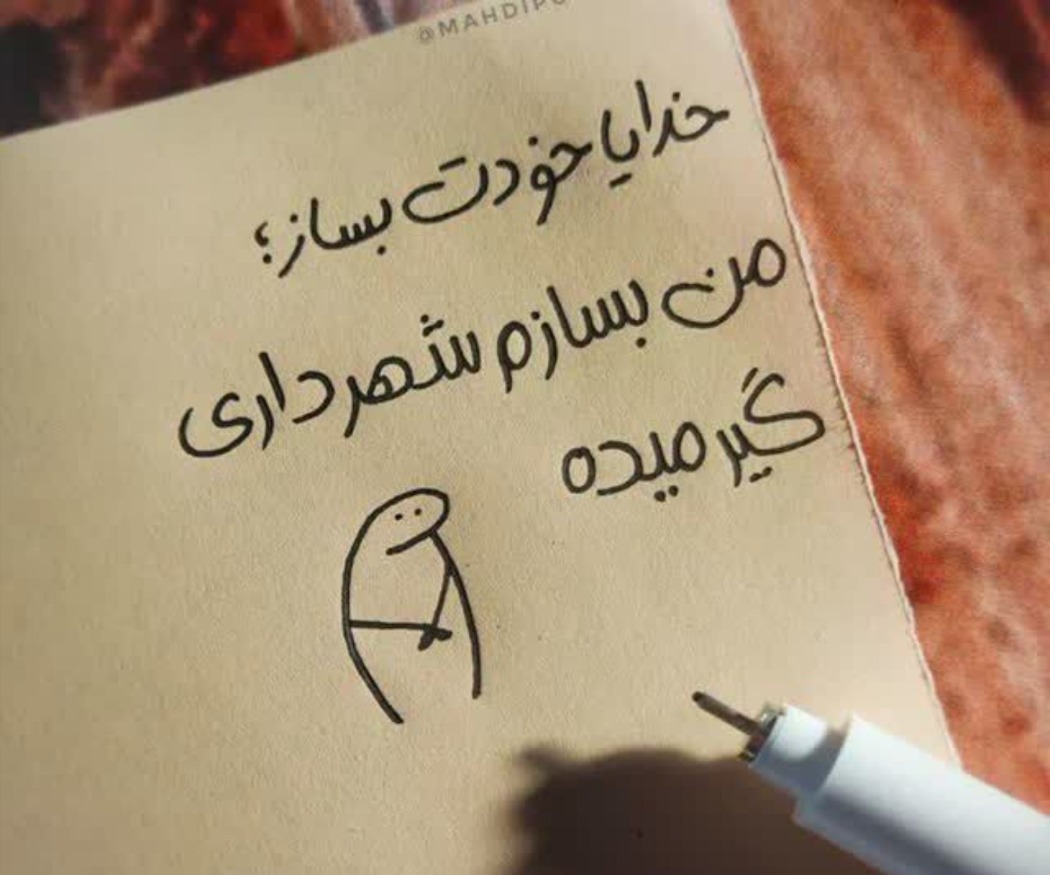 خدایا خودت بساز؛
من بسازم شهرداری
گیر میده